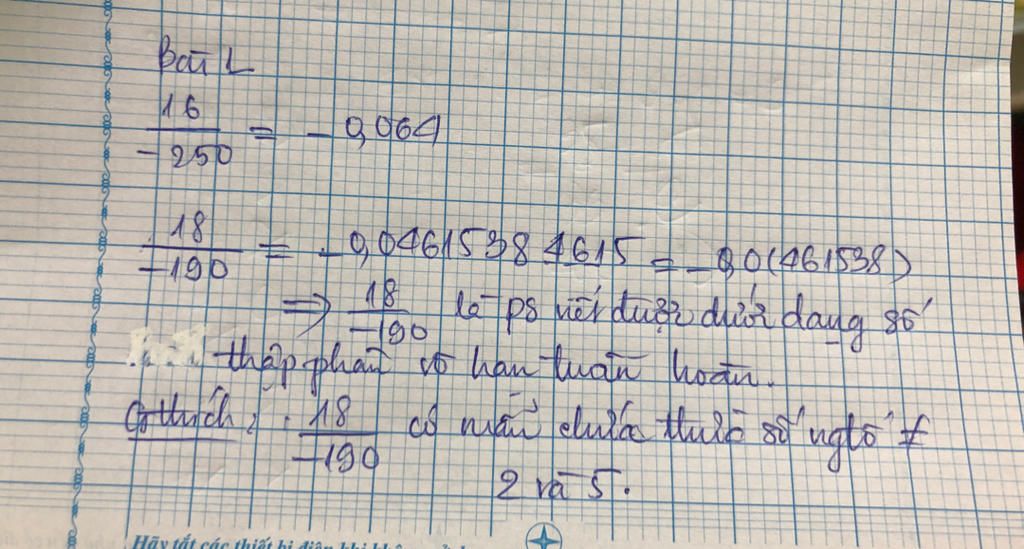 Bài 1
16/-250 = - 0,064
18/-190 = - 0,0461538 4615 = - 0,0(461538)
⇒ 18/-190 là ps viết được dưới dạng số
thập phân vô hạn tuần hoàn.
thích: 18/-190 có mẫu chứa thừa số ngtố ≠
2 và 5.
Hãy tắt các thiết bị điện khi